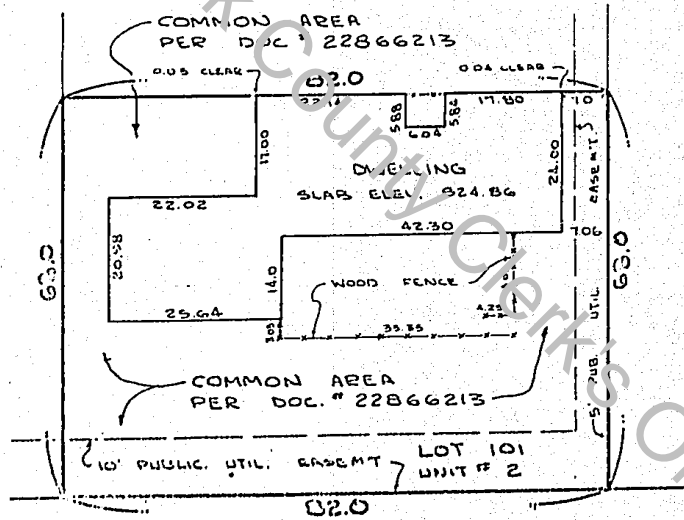 COMMON AREA
PER DOC # 22866213
0.03 CLEAR
0.04 CLEAR
82.0
22.14
5.88
6.04
5.86
17.80
7.0
17.00
DWELLING
SLAB ELEV. 824.86
24.00
5' PUB. UTIL. EASEM'T.
22.02
42.30
7.06
20.58
63.0
63.0
14.0
WOOD FENCE
4.25
25.64
3.05
35.35
COMMON AREA
PER DOC. # 22866213
10' PUBLIC. UTIL. EASEMT
LOT 101
UNIT # 2
82.0
k County Clerk's O